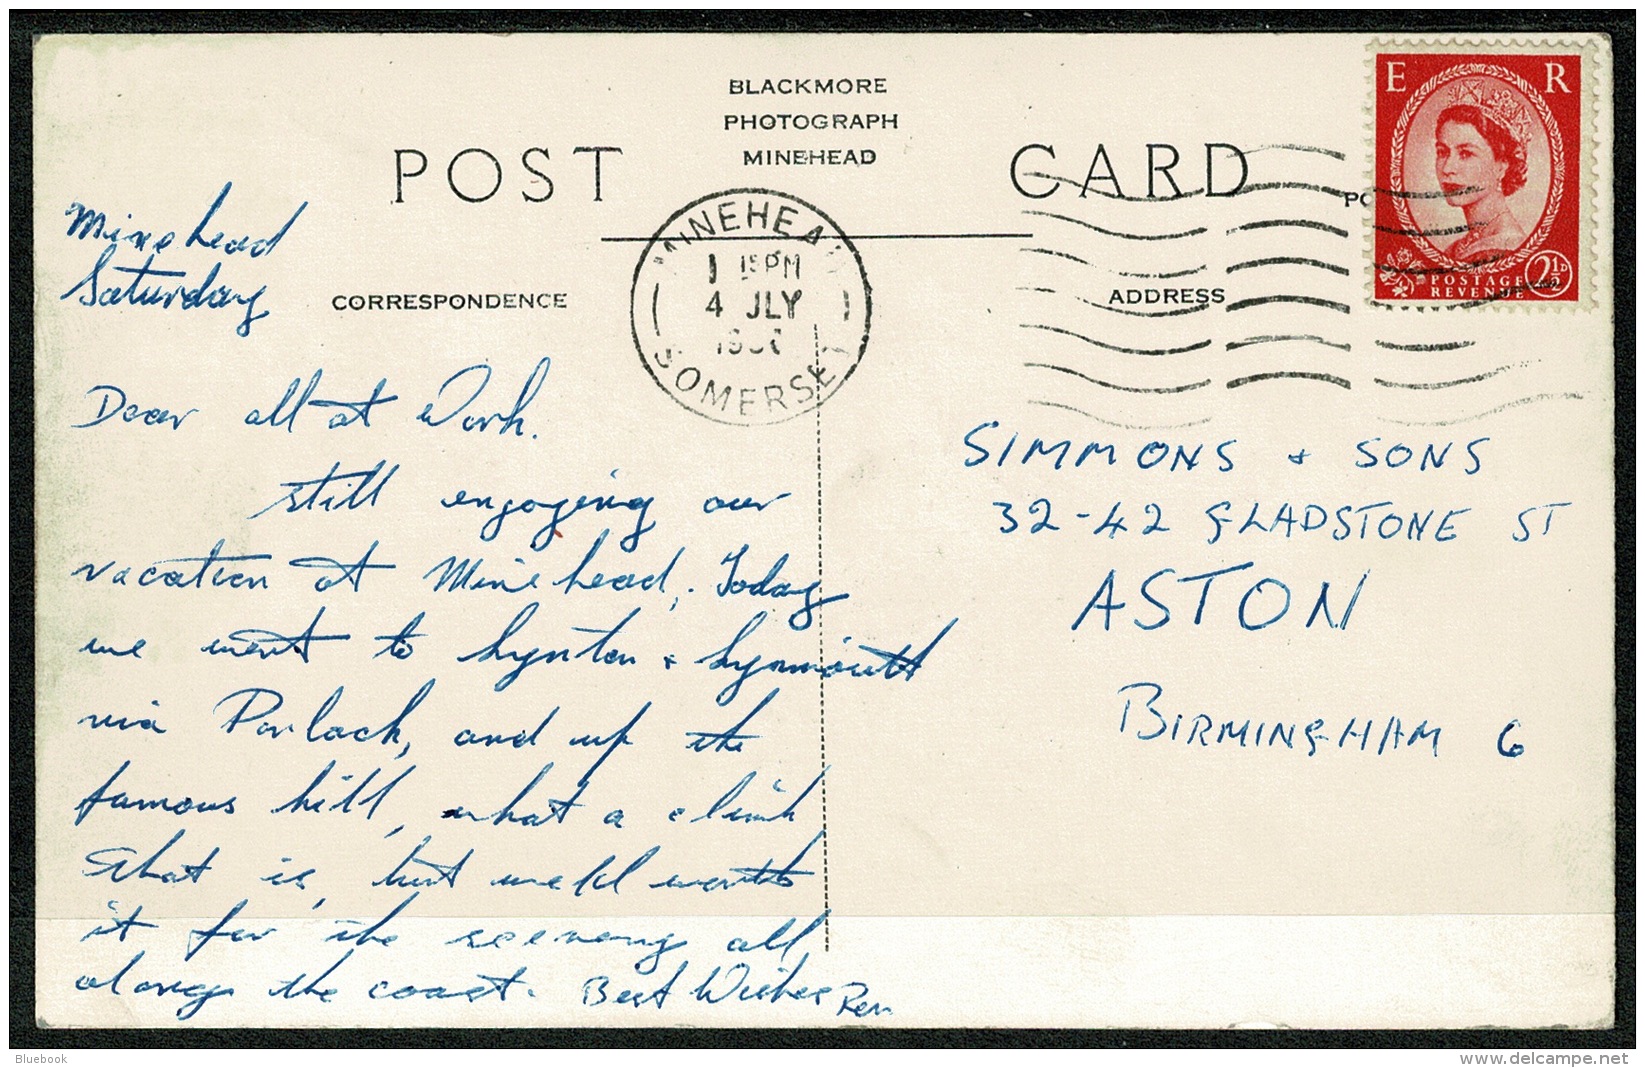 BLACKMORE
PHOTOGRAPH
MINEHEAD
POST CARD
CORRESPONDENCE
ADDRESS
E R
POSTAGE
REVENUE
2½D
MINEHEA
15PM
4 JLY
SOMERSET
Minehead
Saturday
Dear all at Work.
Still engoying our
vacation at Minehead, Today
we went to Lynton + Lynmouth
via Porlock, and up the
famous hill, what a climb
that is, but well worth
it for the scenery all
along the coast. Best Wishes
SIMMONS + SONS
32-42 GLADSTONE ST
ASTON
BIRMINGHAM 6
Bluebook
www.delcampe.net